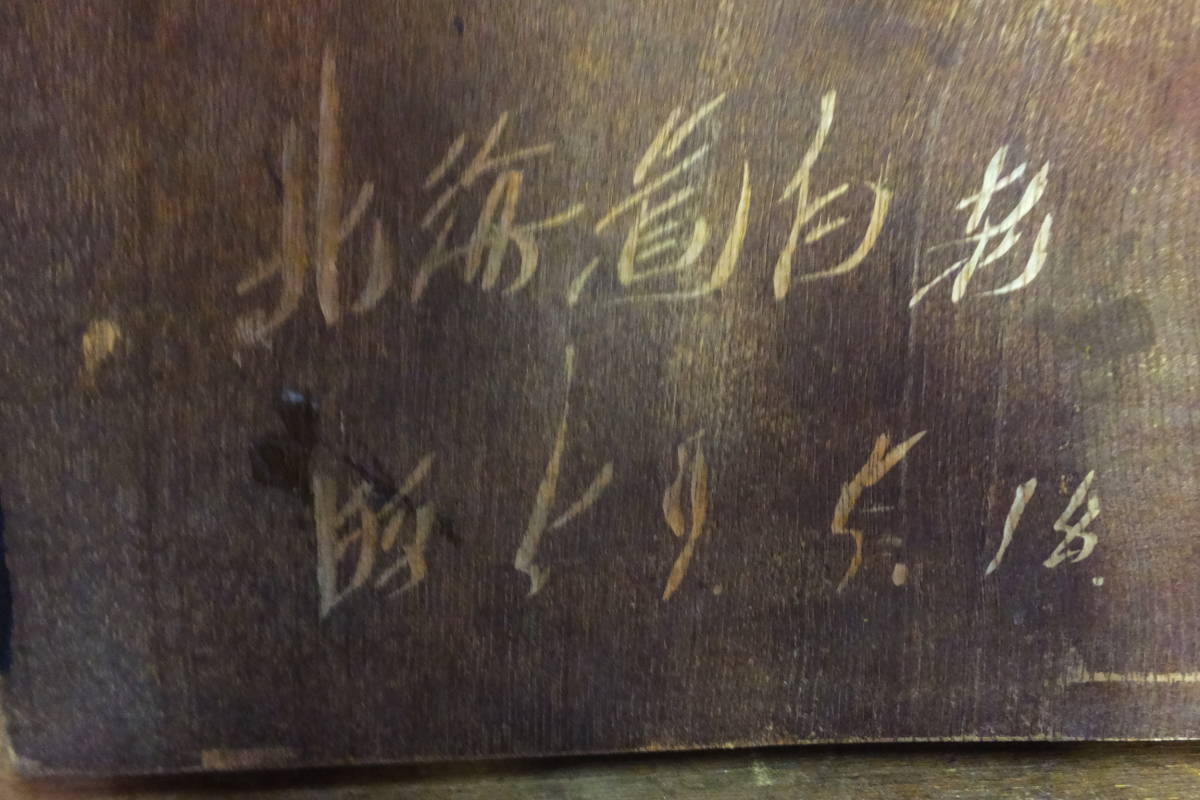 北海道白老
昭 49. 5. 18.